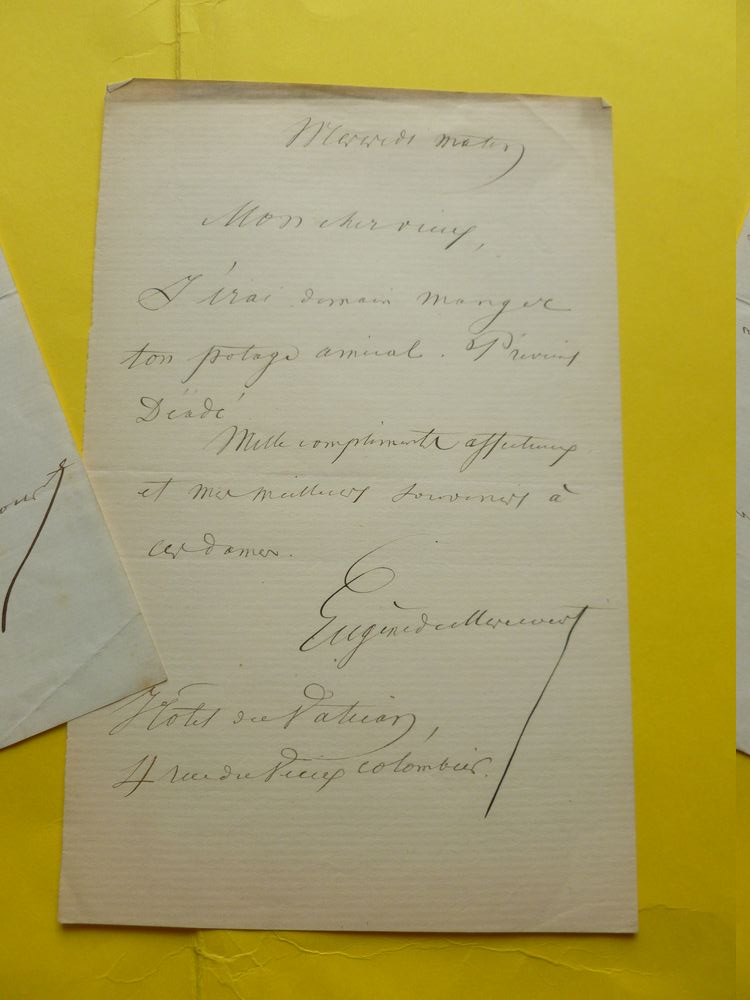 Mercredi matin,
Mon cher vieux,
J'irai demain manger
ton potage amical. Préviens
Dédé
Mille compliments affectueux
et mes meilleurs souvenirs à
ces dames.
Eugène de Mirecourt
Hôtel du Vatican,
4 rue du Vieux colombier.